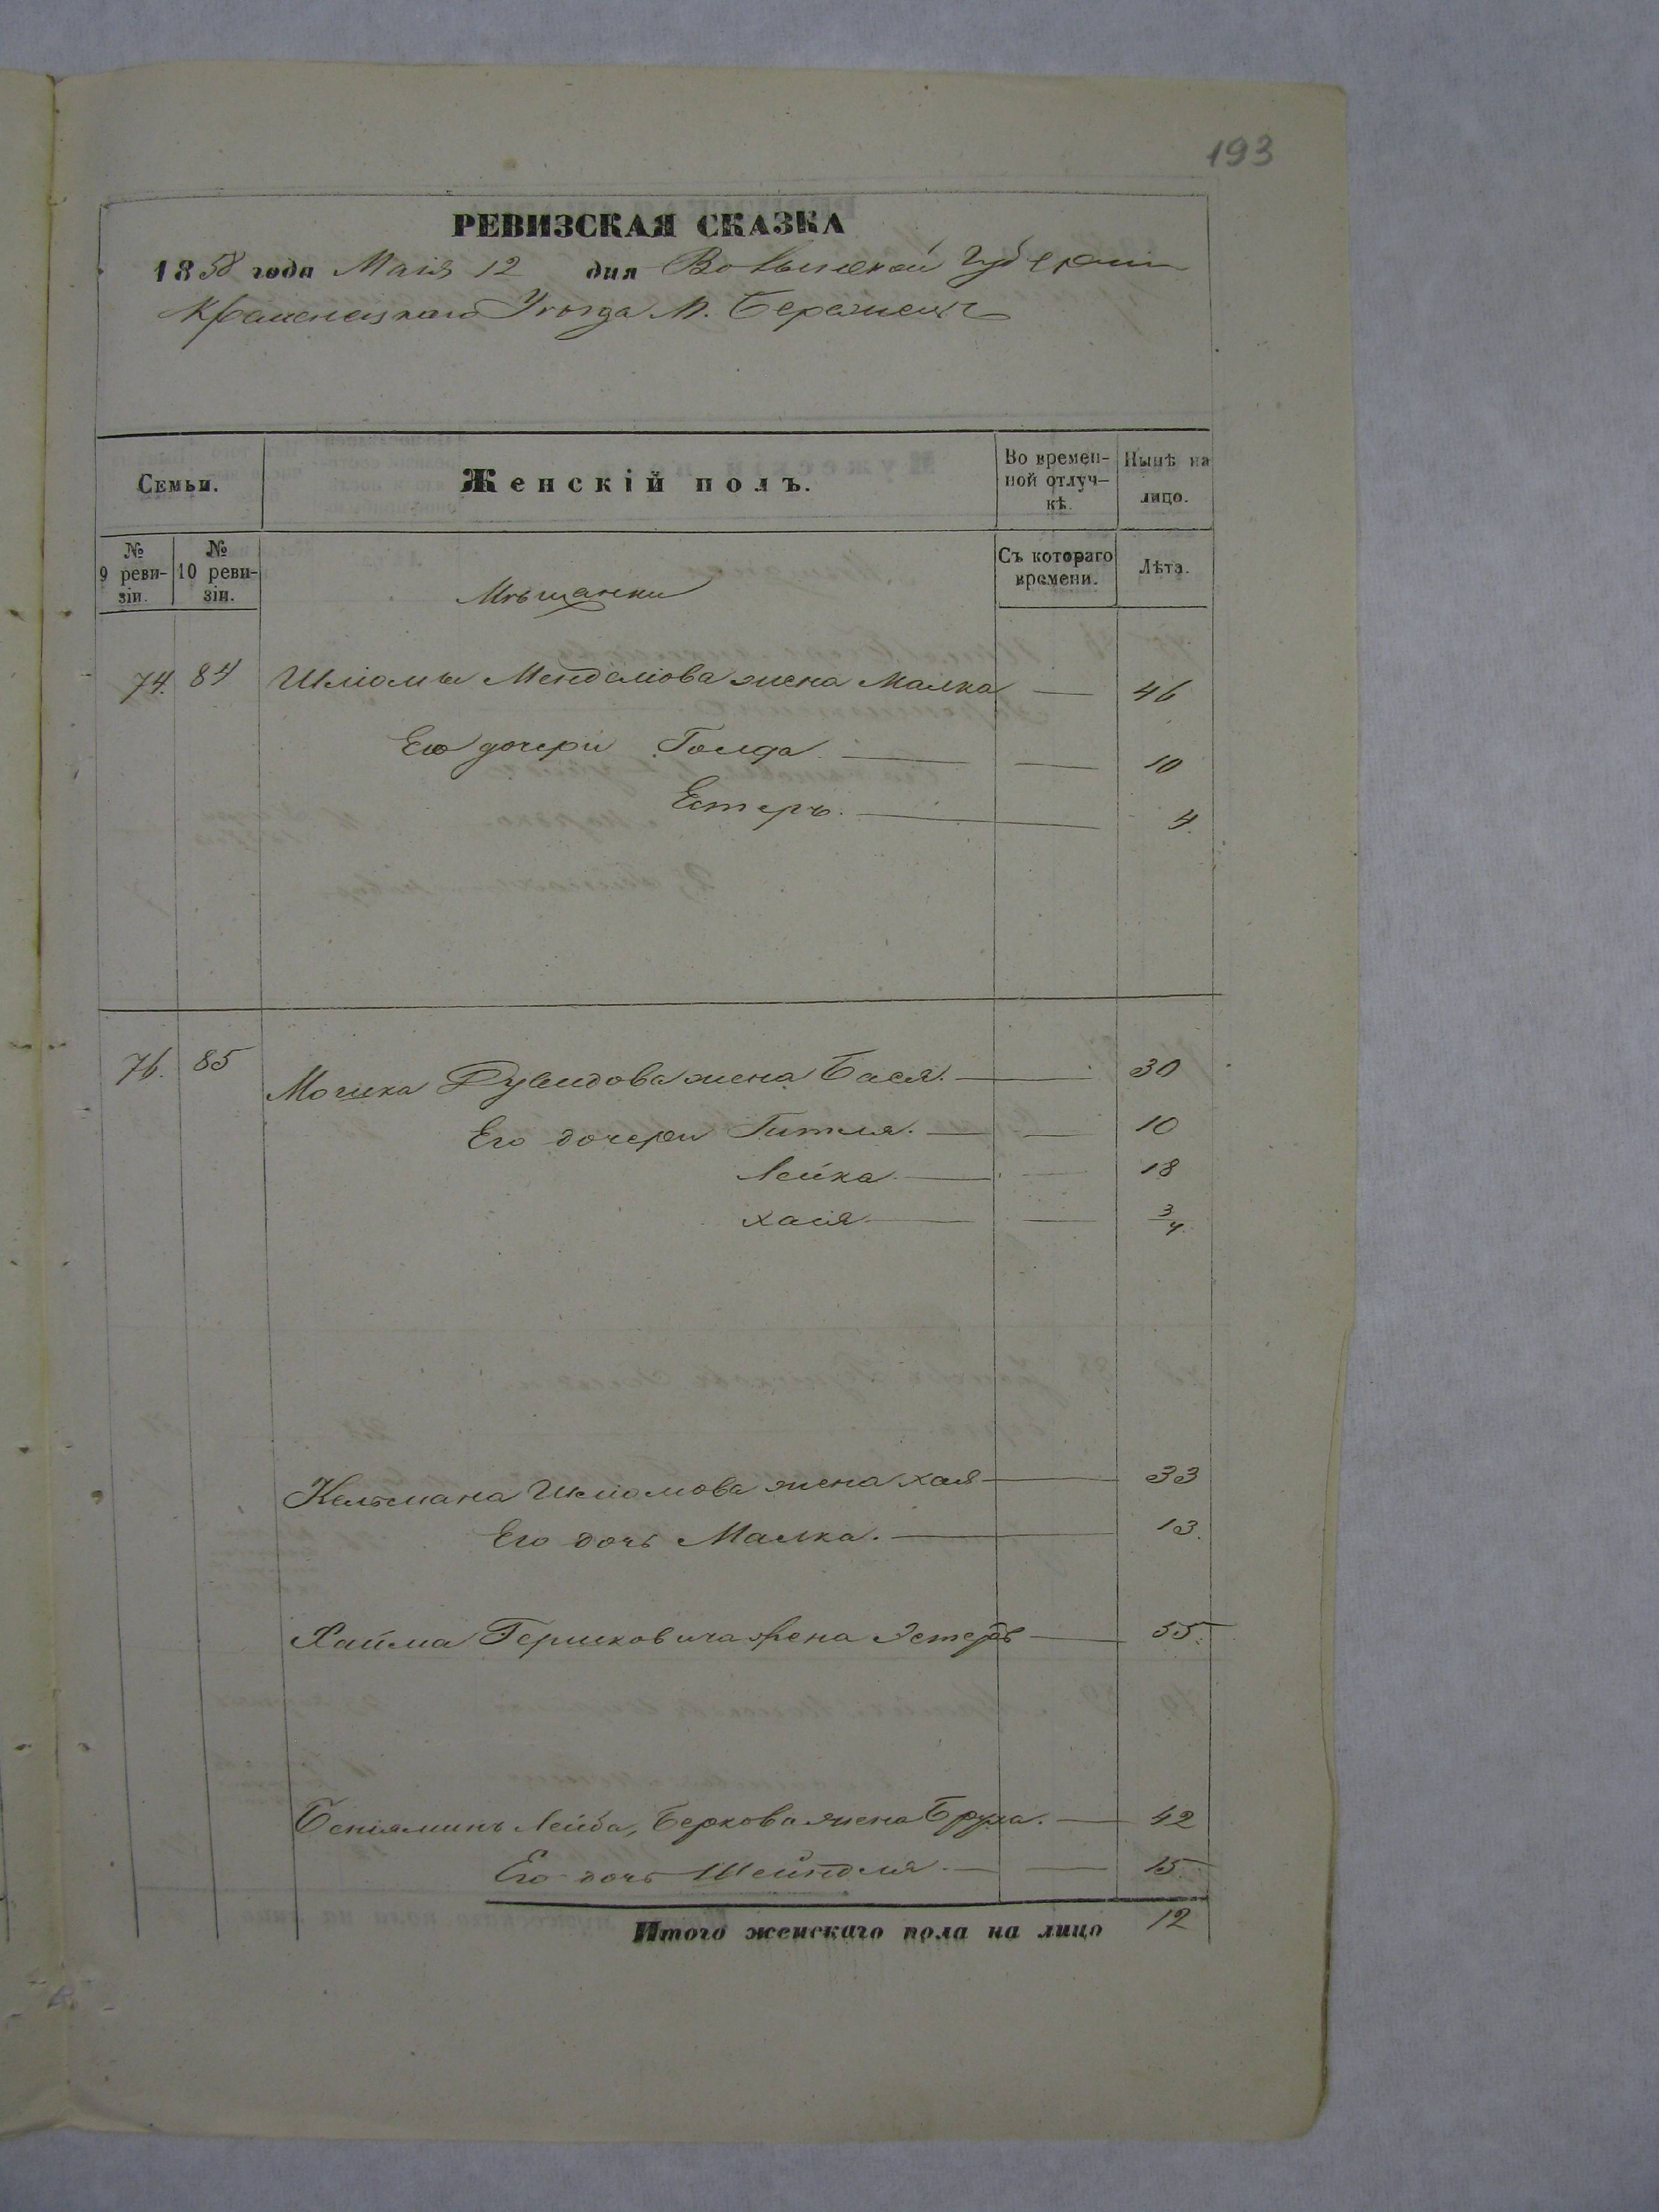 193
РЕВИЗСКАЯ СКАЗКА
1858 года Маія 12 дня Волынской Губерніи
Кременецкаго Уѣзда М. Бережецъ
Семьи.
Женскій полъ.
Во времен-
ной отлуч-
кѣ.
Нынѣ на
лицо.
№
9 реви-
зіи.
№
10 реви-
зіи.
Мѣщанки
Съ котораго
времени.
Лѣта.
74. 84 Шліомы Менделіова жена Малка — 46
Его дочери Голда — — 10
Естеръ. — 4.
76. 85 Мошка Дувидова жена Бася. — 30
Его дочери Гитля. — — 10
Лейка — — 18
Хася — — 3/4.
Кельмана Шліомова жена Хая — 33
Его дочь Малка. — 13.
Хайма Гершковича жена Эстеръ — 55.
Беніяминъ Лейба, Беркова жена Бруха. — 42
Его дочь Шейндля. — — 15.
Итого женскаго пола на лицо 12